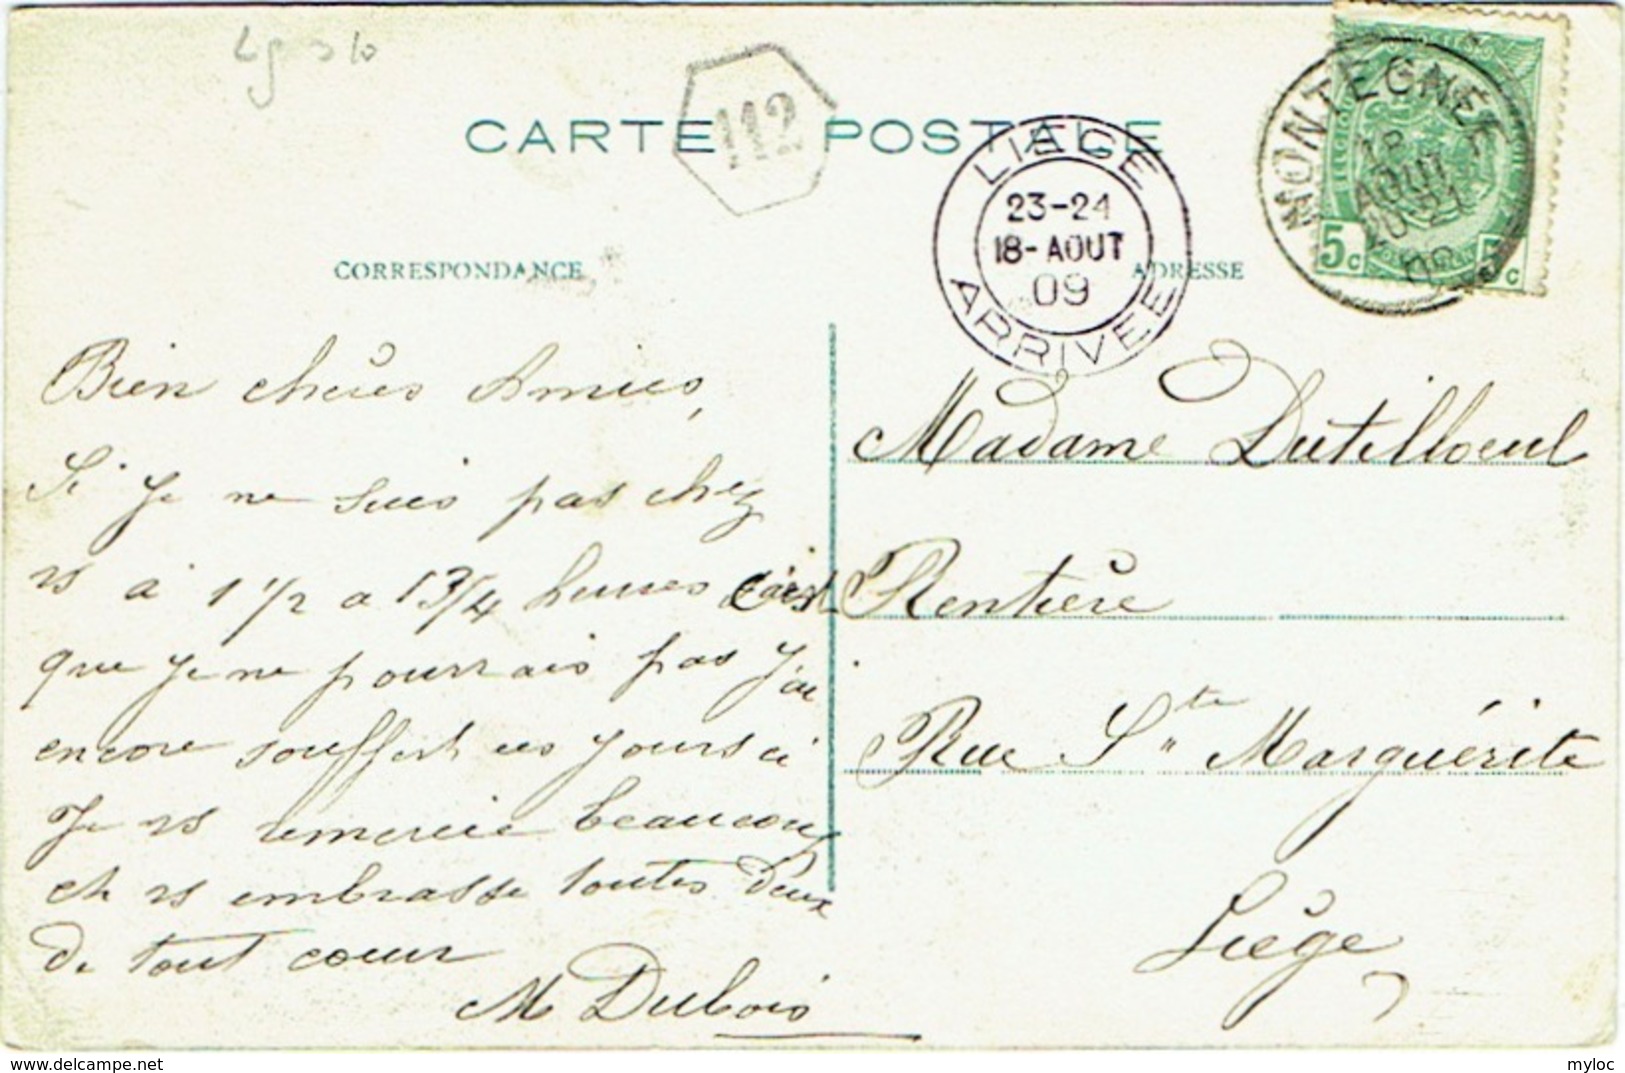 112
CARTE POSTALE
LIEGE
23-24
18-AOUT
09
ARRIVEE
MONTEGNÉE
18
AOUT
20-21
09
BELGIQUE
5c 5c
CORRESPONDANCE
ADRESSE
Bien chères Amies,
Si je ne suis pas chez
vs à 1 1/2 a 1 3/4 heures c'est
que je ne pourrais pas j'ai
encore souffert ces jours ci
Je vs remercie beaucoup
et vs embrasse toutes deux
de tout cœur
M Dubois
Madame Dutilloeul
Rentière
Rue Ste Marguérite
Liège
Delcampe.net
myloc